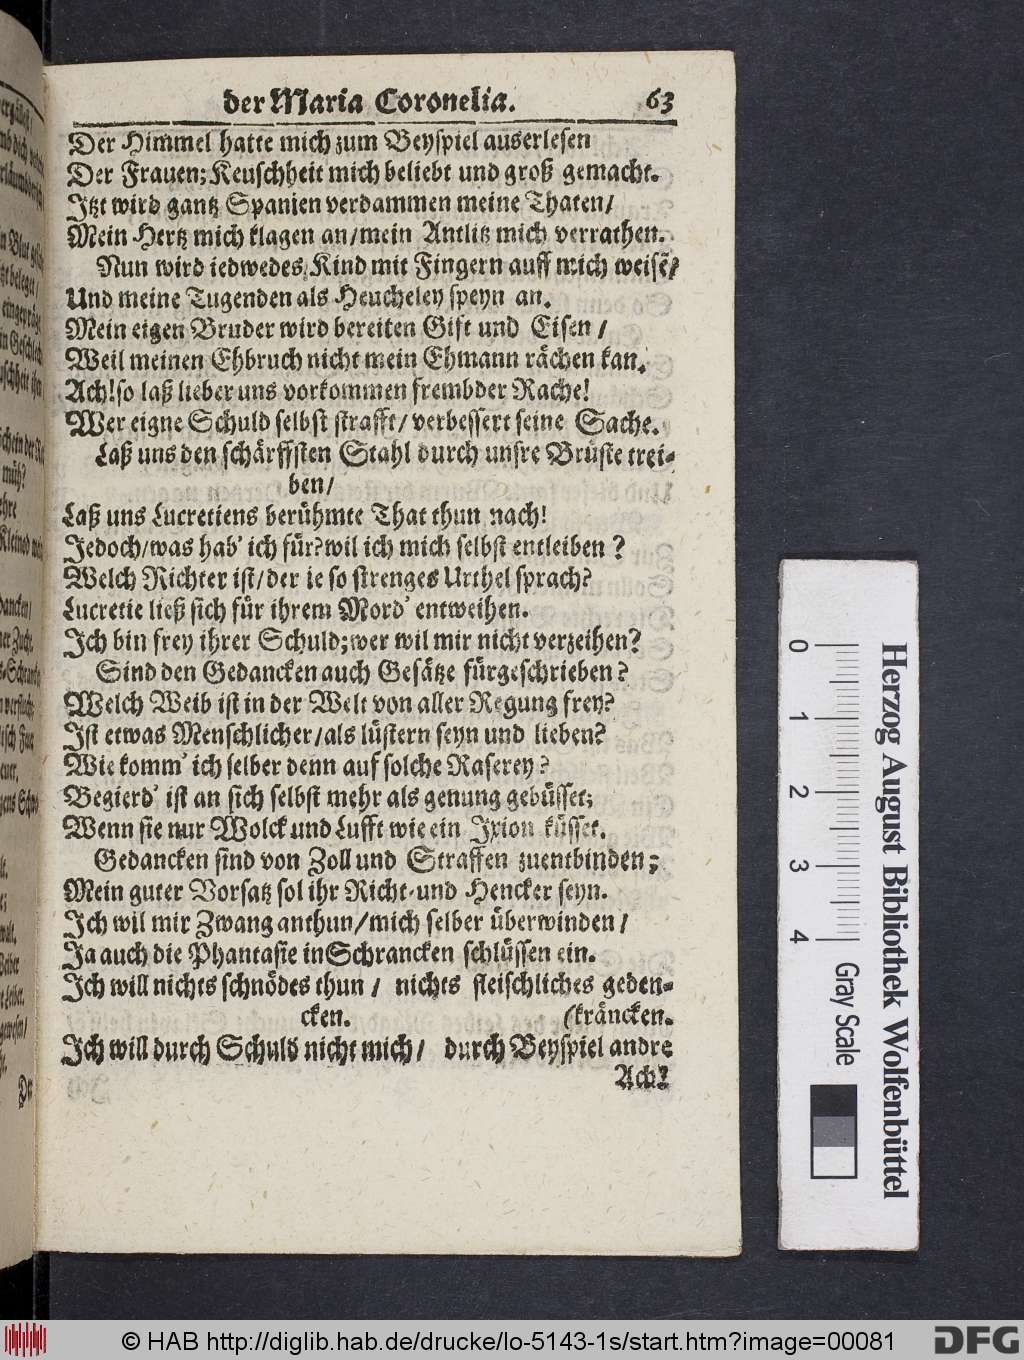 der Maria Coronelia. 63
Der Himmel hatte mich zum Beyspiel auserlesen
Der Frauen; Keuschheit mich beliebt und groß gemacht.
Jtzt wird gantz Spanien verdammen meine Thaten/
Mein Hertz mich klagen an/mein Antlitz mich verrathen.
Nun wird iedwedes Kind mit Fingern auff mich weisẽ/
Und meine Tugenden als Heucheley speyn an.
Mein eigen Bruder wird bereiten Gift und Eisen /
Weil meinen Ehbruch nicht mein Ehmann rächen kan.
Ach! so laß lieber uns vorkommen frembder Rache!
Wer eigne Schuld selbst strafft/ verbessert seine Sache.
Laß uns den schärffsten Stahl durch unsre Brüste trei-
ben/
Laß uns Lucretiens berühmte That thun nach!
Jedoch/was hab' ich für? wil ich mich selbst entleiben?
Welch Richter ist/der ie so strenges Urthel sprach?
Lucretie ließ sich für ihrem Mord' entweihen.
Jch bin frey ihrer Schuld; wer wil mir nicht verzeihen?
Sind den Gedancken auch Gesätze fürgeschrieben?
Welch Weib ist in der Welt von aller Regung frey?
Jst etwas Menschlicher/als lüstern seyn und lieben?
Wie komm' ich selber denn auf solche Raserey?
Begierd' ist an sich selbst mehr als genung gebüsset;
Wenn sie nur Wolck und Lufft wie ein Jxion küsset.
Gedancken sind von Zoll und Straffen zuentbinden;
Mein guter Vorsatz sol ihr Richt- und Hencker seyn.
Jch wil mir Zwang anthun/mich selber überwinden/
Ja auch die Phantasie in Schrancken schlüssen ein.
Jch will nichts schnödes thun / nichts fleischliches geden-
cken. (kräncken.
Jch will durch Schuld nicht mich/ durch Beyspiel andre
Ach!
0 1 2 3 4
Gray Scale
Herzog August Bibliothek Wolfenbüttel
© HAB http://diglib.hab.de/drucke/lo-5143-1s/start.htm?image=00081
DFG